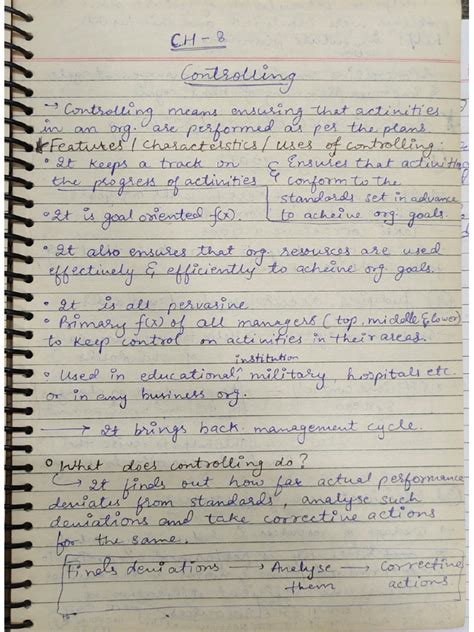 CH-8
Controlling
→ Controlling means ensuring that activities
in an org. are performed as per the plans
* Features / Characteristics / uses of controlling:
• It keeps a track on & Ensures that activities
the progress of activities conform to the
standards set in advance
• It is goal oriented f(x). to acheive org goals.
• It also ensures that org. resources are used
effectively & efficiently to acheive org goals.
• It is all pervasive
• Primary f(x) of all managers ( top, middle & lower)
to keep control on activities in their areas.
institution
• Used in educational, military, hospitals etc.
or in any business org.
→ It brings back management cycle.
• What does controlling do?
↳ It finds out how far actual performance
deviates from standards, analyse such
deviations and take corrective actions
for the same.
Finds deviations → Analyse → Corrective
them actions